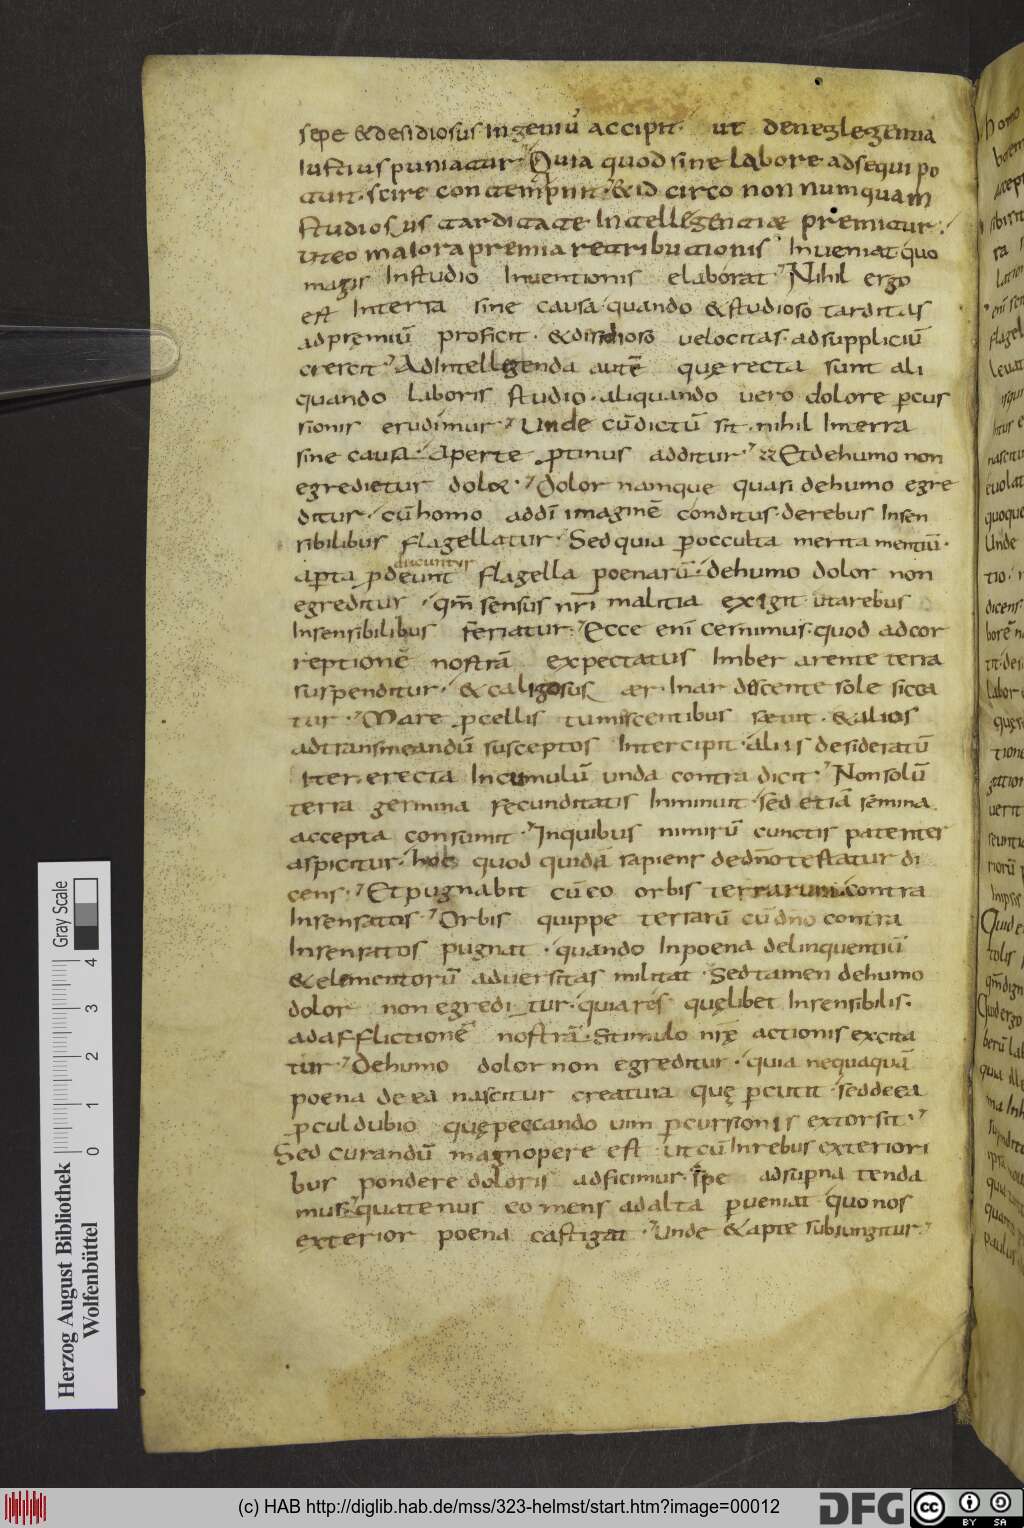 sepe & desidiosus ingeniū accipit · ut de neglegentia
iustius puniatur · Quia quod sine labore adsequi po
tuit · scire contempnit · & id circo non numquam
studiosus tarditate intellegentiæ premitur ·
ut eo maiora premia retributionis inveniat quo
magis in studio inventionis elaborat · Nihil ergo
est in terra sine causa · quando & studioso tarditas
ad premiū proficit · & disidioso velocitas · ad suppliciū
crescit · Ad intellegenda autē quę recta sunt ali
quando laboris studio · aliquando vero dolore pcus
sionis erudimur · Unde cū dictū sit · nihil in terra
sine causa · Aperte protinus additur · Et de humo non
egredietur dolor · Dolor namque quasi de humo egre
ditur · cū homo ad dī imaginē conditus · de rebus insen
sibilibus flagellatur · Sed quia p occulta merita mentiū ·
ducuntur
apta pdeunt flagella poenarū · de humo dolor non
egreditur · qm̄ sensus nrī malitia exigit ut a rebus
insensibilibus feriatur · Ecce enī cernimus · quod ad cor
reptionē nostrā expectatus imber arente terra
suspenditur · & caligosus aer · inardescente sole sicca
tur · Mare pcellis tumiscentibus sævit · & alios
ad transmeandū susceptos intercipit · aliis desideratū
iter · erecta in cumulū unda contradicit · Non solū
terra germina fecunditatis inminuit · sed etiā semina
accepta consumit · In quibus nimirū cunctis patenter
aspicitur · hoc quod quidā sapiens de dn̄o testatur di
cens · Et pugnabit cū eo orbis terrarum contra
insensatos · Orbis quippe terrarū cū dn̄o contra
insensatos pugnat · quando in poena delinquentiū
& elementorū adversitas militat · Sed tamen de humo
dolor non egreditur · quia res quęlibet insensibilis ·
ad afflictionē nostrā · stimulo nrę actionis excita
tur · De humo dolor non egreditur · quia nequaquā
poena de ea nascitur creatura quę pcutit · sed de ea
pcul dubio quę peccando vim pcussionis extorsit ·
Sed curandū magnopere est ut cū in rebus exteriori
bus pondere doloris adficimur · spe ad supna tenda
mus · quatenus eo mens ad alta pveniat quo nos
exterior poena castigat · Unde & apte subjungitur ·
Herzog August Bibliothek
Wolfenbüttel
Gray Scale
0 1 2 3 4
(c) HAB http://diglib.hab.de/mss/323-helmst/start.htm?image=00012
DFG
cc
BY SA